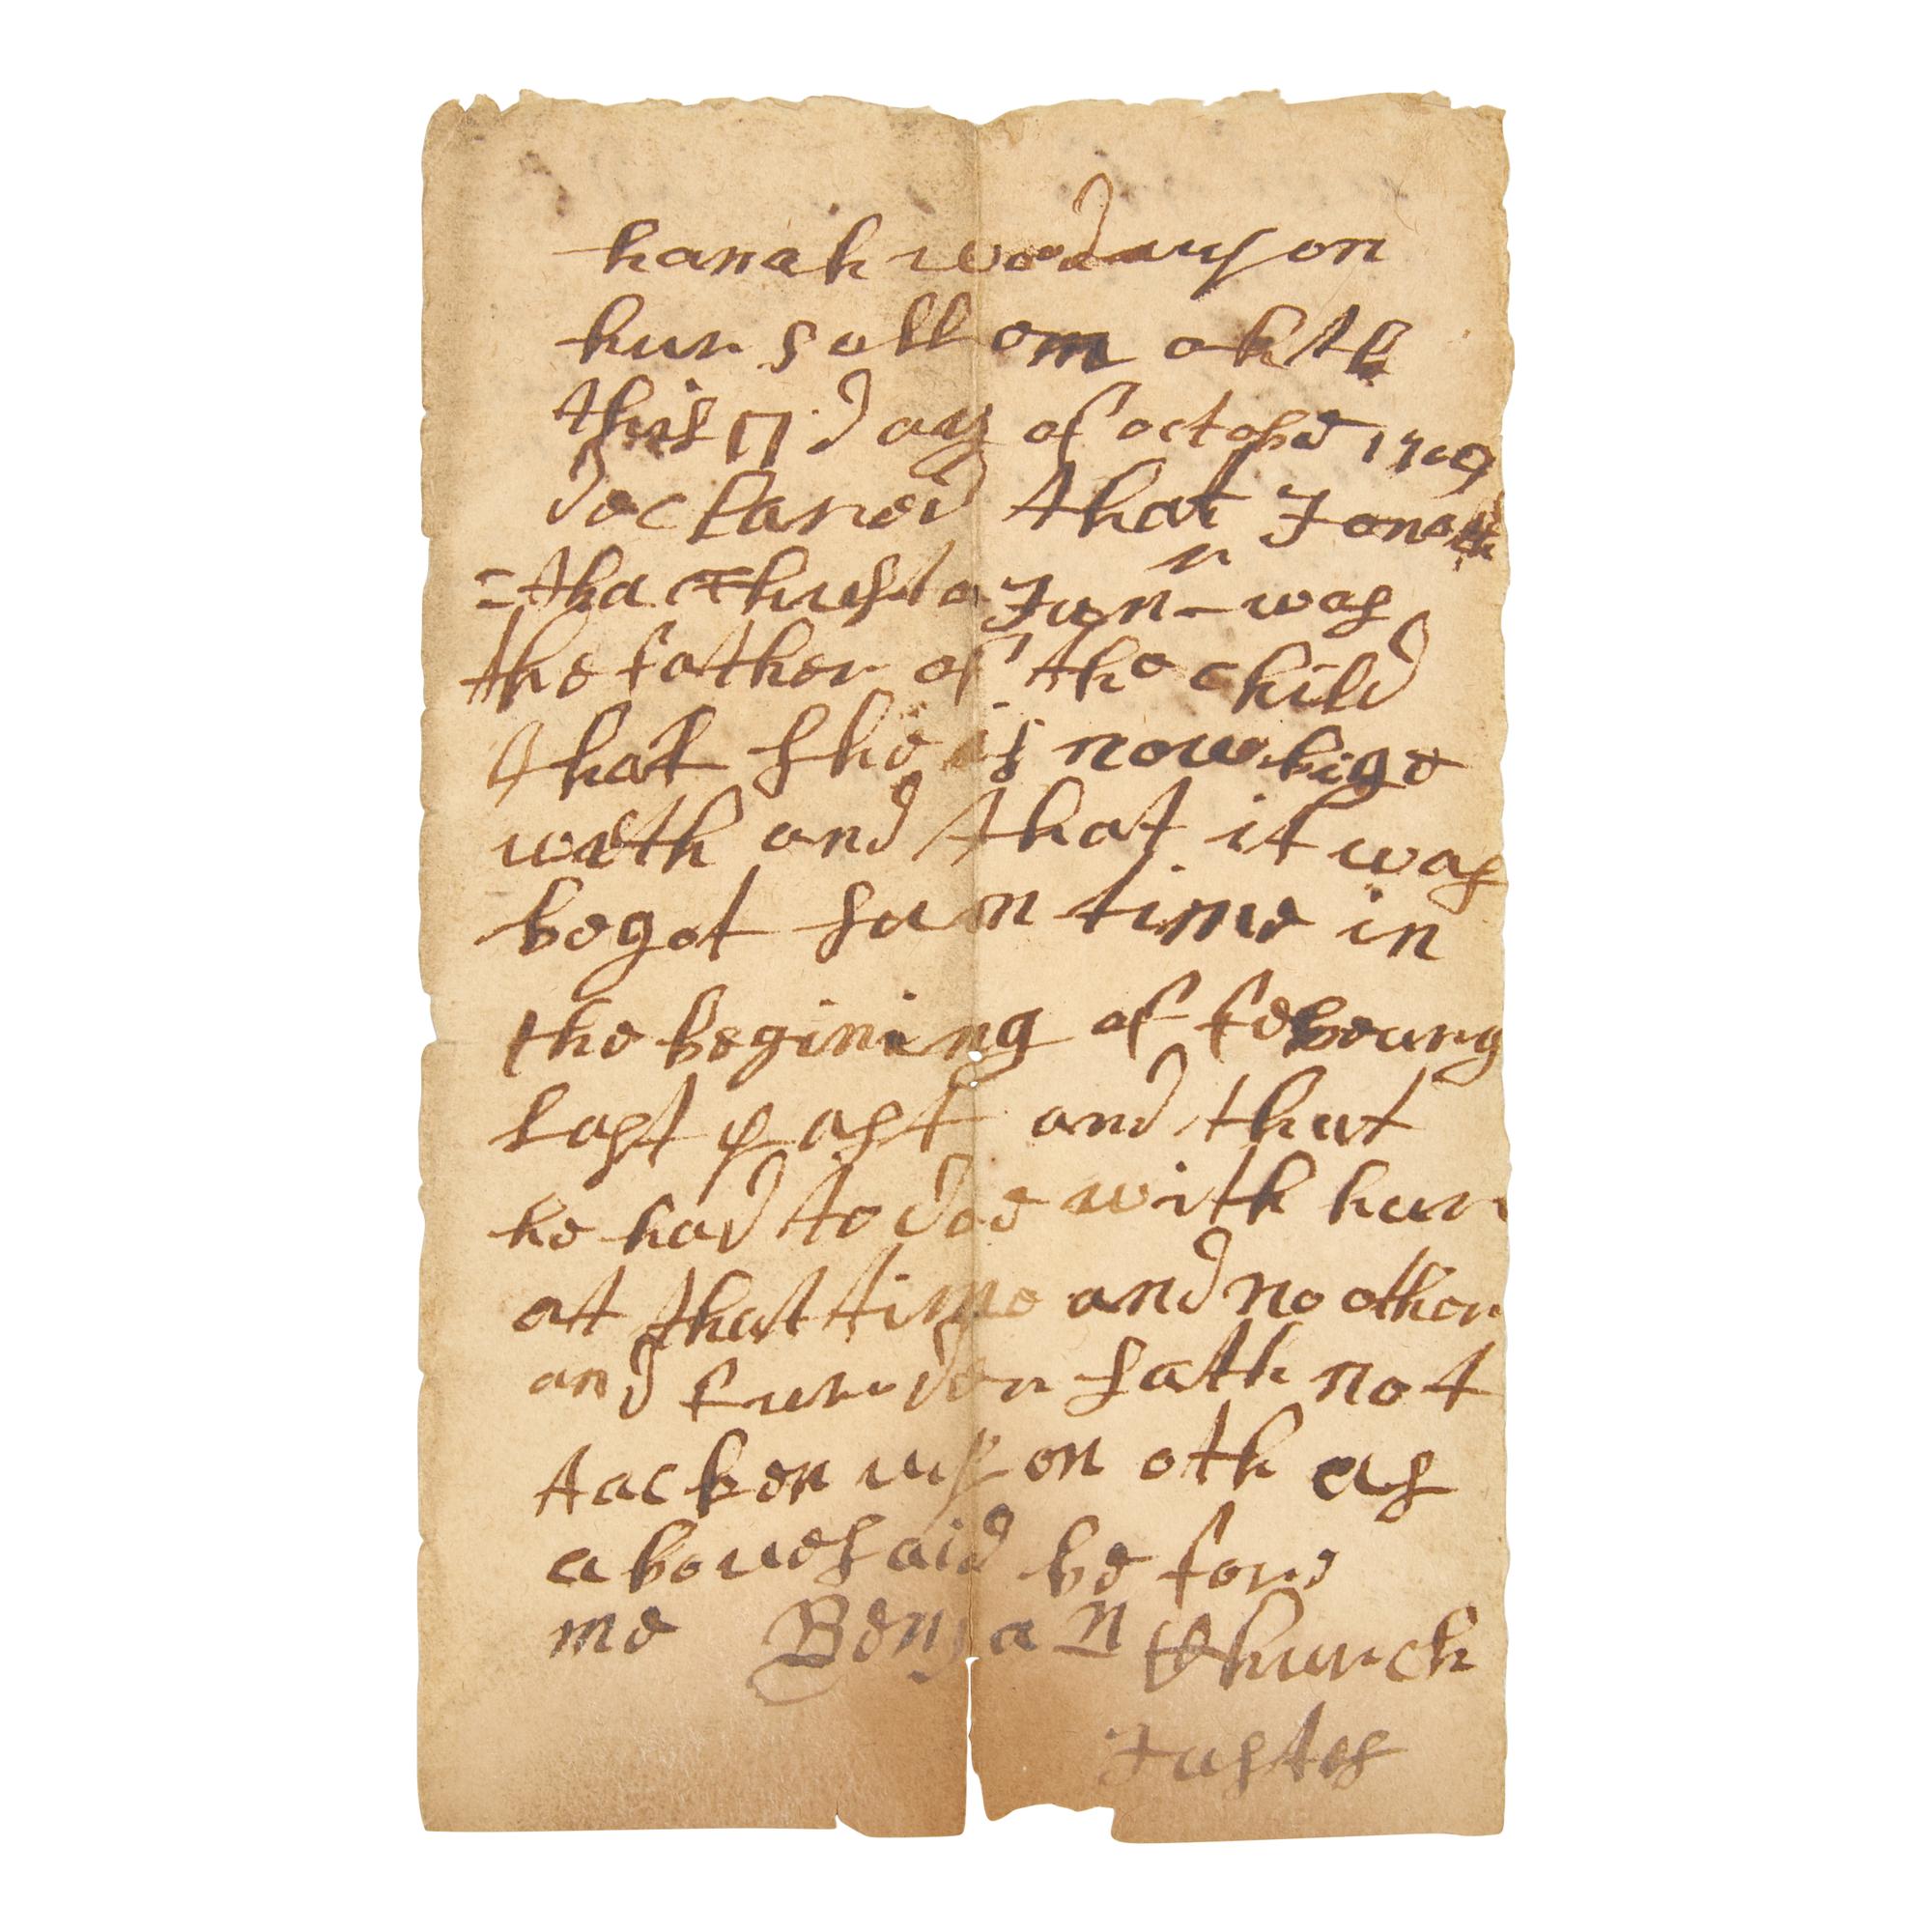 hanah wood upon
hur sollom ohth
this 17 day of octobr 1709
declared that Jona
=tha Thusto Junr was
the father of the child
that she is now bige
with and that it was
begot sum time in
the begining of febeury
last past and that
he had to doe with hur
at that time and no other
and furder sath not
tacken upon oth as
abouesaid before
me Benjan Church
Justes